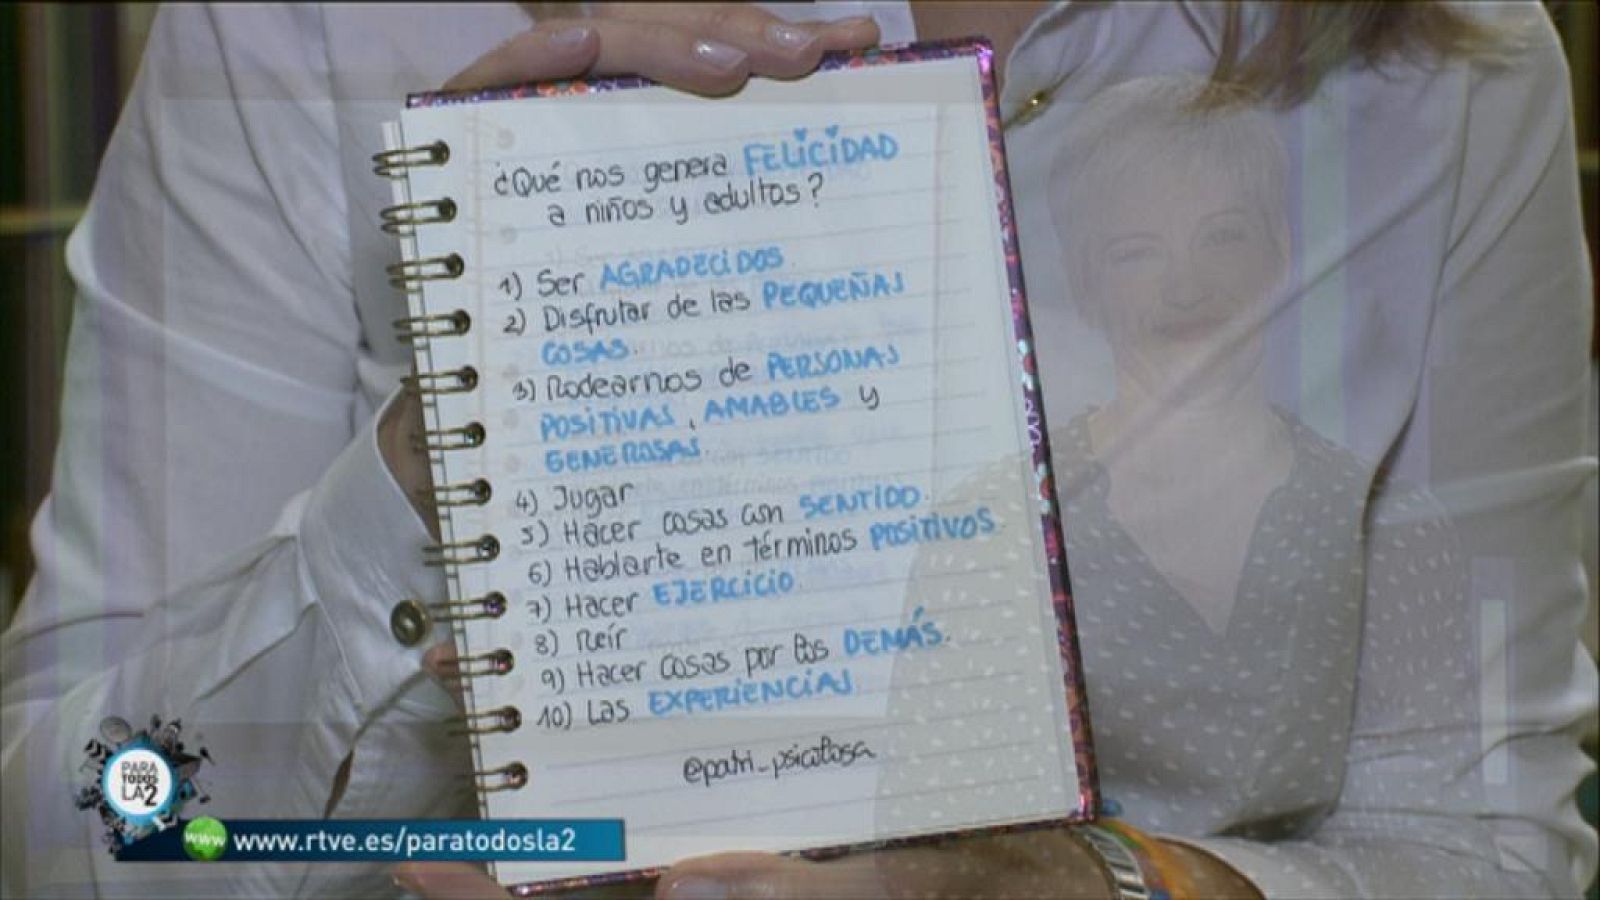 ¿Qué nos genera FELICIDAD
a niños y adultos?
1) Ser AGRADECIDOS.
2) Disfrutar de las PEQUEÑAS
COSAS.
3) Rodearnos de PERSONAS
POSITIVAS, AMABLES y
GENEROSAS.
4) Jugar
5) Hacer cosas con SENTIDO.
6) Hablarte en términos POSITIVOS.
7) Hacer EJERCICIO.
8) Reír
9) Hacer cosas por los DEMÁS.
10) Las EXPERIENCIAS.
@patri_psicologa
PARA
TODOS
LA2
www www.rtve.es/paratodosla2